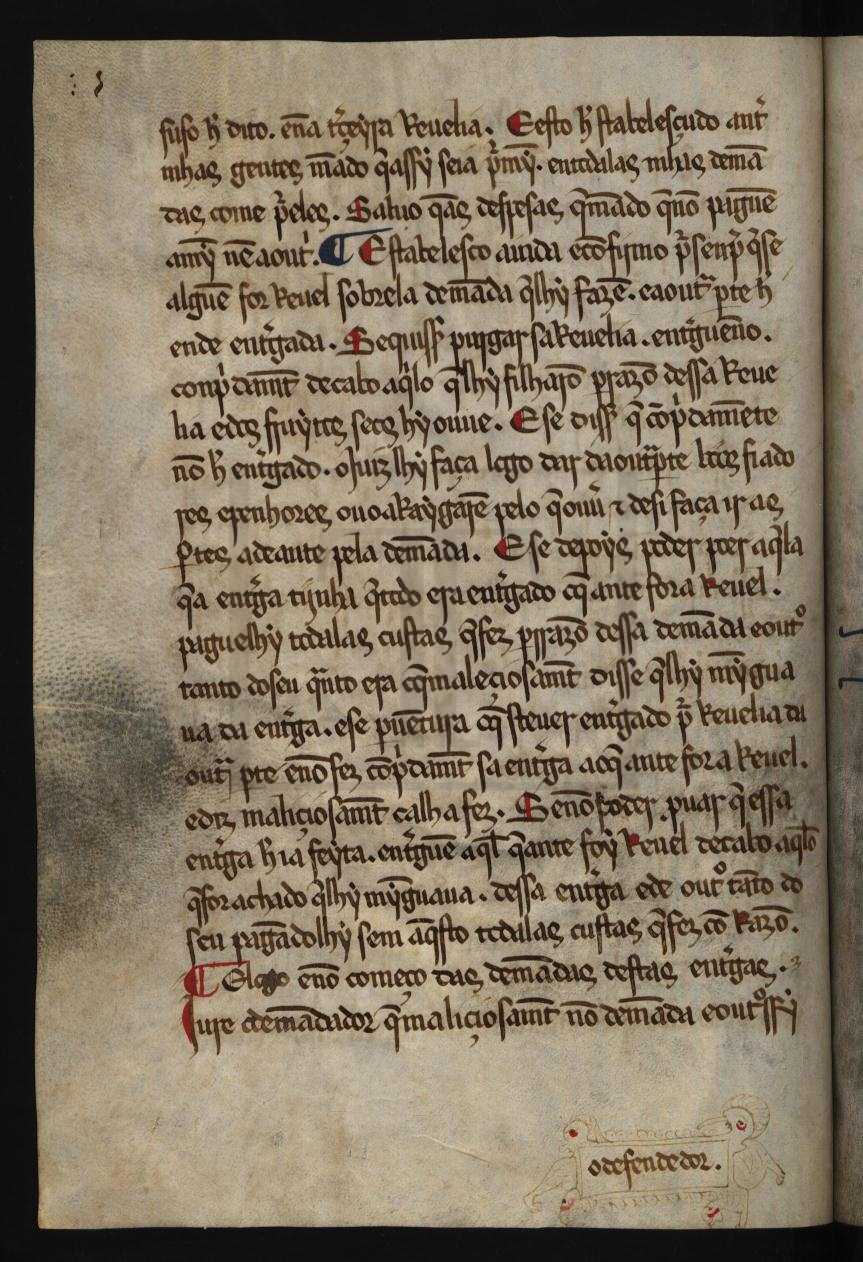 suso h̃ dito. ẽna t̃çeyra Reuelia. Eesto h̃ stabelesçudo ant̃
mhas gentes mãdo q̃assỹ seia p̃mỹ. entodalas mhas demã
das come p̃eles. Saluo q̃as despesas q̃mãdo q̃nõ paguẽ
amỹ nẽ aout̃. ¶ Estabelesco ainda ecõfirmo p̃ senp̃ q̃se
alguẽ for Reuel sobrela demãda q̃lhỹ fazẽ. eaout̃ p̱te h̃
ende ent̃gada. Sequiss̃ purgar saReuelia. ent̃guẽno.
conp̃damẽt decabo aq̃lo q̃lhỹ filharõ p̱razõ dessa Reue
lia edos fruytos seos hy ouue. E se diss̃ q̃ cõp̃damẽte
nõ h̃ ent̃gado. oJuiz lhỹ faça logo dar daout̃p̱te bõos fiado
res epenhores ouoaRaygarẽ pelo q̃ouũ ⁊ desi faça ir as
p̱tes adeante pela demãda. E se depoys poder p̱er aq̃la
q̃a ent̃ga tijnha q̃todo era ent̃gado oq̃ ante fora Reuel.
paguelhỹ todalas custas q̃fez p̱razõ dessa demãda eoutº
tanto doseu q̃nto era oq̃maleçiosamẽt disse q̃lhỹ mỹgua
ua da ent̃ga. ese p̱uẽtura oq̃ steuer ent̃gado p̃ Reuelia da
out̃ p̱te enõ fez cõp̃damẽt sa ent̃ga aoq̃ ante fora Reuel.
ediz maliçiosamẽt calha fez. Senõ poder p̱uar q̃ essa
ent̃ga h̃ ia feyta. ent̃guẽ aq̃l q̃ante foy Reuel decabo aq̃lo
q̃for achado q̃lhỹ mỹguaua. dessa ent̃ga ede outº tãto do
seu pagãdolhỹ sem aq̃sto todalas custas q̃fez cõ Razõ.
¶ Elogo enõ começo das demãdas destas ent̃gas.
Jure odemãdador q̃maliçiosamẽt nõ demãda eoutºssỹ
odefendedor.